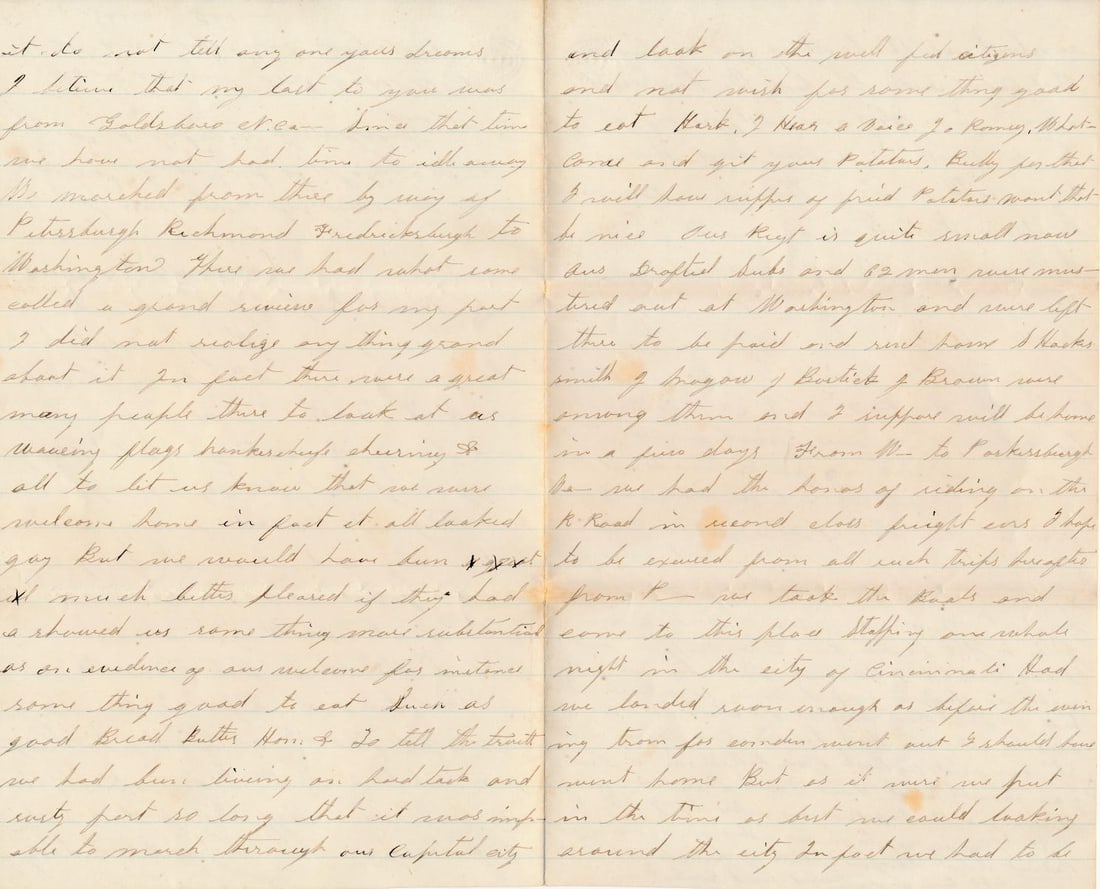 it do not tell any one yours dreams
I beleive that my last to you was
from Goldsboro N. Ca— Since that time
we have not had time to idle away
We marched from there by way of
Petersburgh Richmond Fredricksburgh to
Washington There we had what some
called a grand review for my part
I did not realize any thing grand
about it In fact there were a great
many people there to look at us
waveing flags hankercheifs cheering &
all to let us know that we were
welcome home in fact it all looked
gay But we would have been
much better pleased if they had
a showed us some thing more substantial
as an evidence of our welcome for instance
some thing good to eat Such as
good Bread Butter Ham & To tell the truth
we had been liveing on hard tack and
rusty pork so long that it was imposs-
able to march through our Capital city
and look on the well fed citizens
and not wish for some thing good
to eat Hark. I Hear a Voice Jo Romey. What—
Come and git your Potatoes. Bully for that
I will have supper of fried Potatoes wont that
be nice Our Regt is quite small now
Our Drafted Subs and 62 men were mus—
tered out at Washington and were left
there to be paid and sent home S Hacks
smith J Magaw J Bostick J Brown were
among them and I suppose will be home
in a few days From W— to Parkersburgh
Va— we had the honor of riding on the
R. Road in second class freight cars I hope
to be excused from all such trips hereafter
from P— we took the Boats and
come to this place Stopping one whole
night in the city of Cincinnati Had
we landed soon enough as before the even
ing train for camden went out I should have
went home But as it were we put
in the time as best we could looking
around the city In fact we had to be